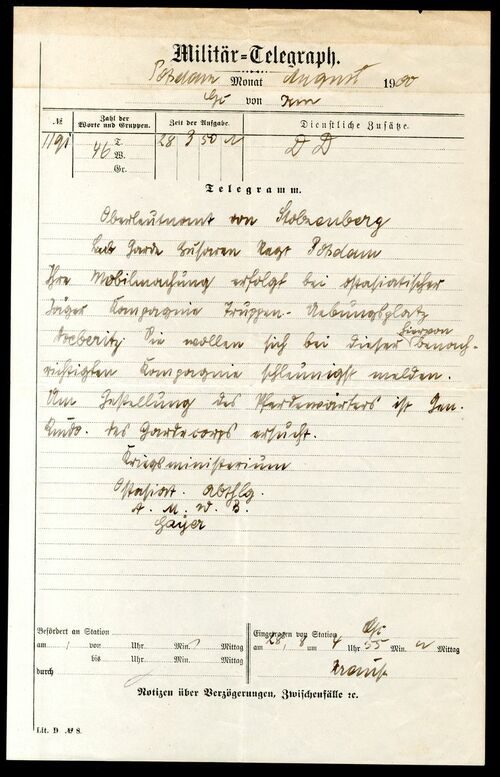 Militär-Telegraph.
Potsdam Monat August 1900
von
№ Zahl der Worte und Gruppen. Zeit der Aufgabe. Dienstliche Zusätze.
1191 46 T. W. Gr. 28 3 50 N D D
Telegramm.
Oberleutnant von Stolzenberg
Leib Garde Husaren Regt Potsdam
Ihre Mobilmachung erfolgt bei ostasiatischer
Jäger Kompagnie Truppen-Uebungsplatz
Doeberitz. Sie wollen sich bei dieser hiervon benach-
richtigten Kompagnie schleunigst melden.
Um Gestellung des Pferdewärters ist Gen.
Kmdo. des Gardecorps ersucht.
Kriegsministerium
Ostasiat. Abthlg.
A. M. v. B.
Gayer
Befördert an Station
am / von Uhr Min. Mittag
bis Uhr Min. Mittag
durch
Eingegangen von Station
am 28/8 4 Uhr 55 Min. N Mittag
Notizen über Verzögerungen, Zwischenfälle ꝛc.
Lit. D № 8.